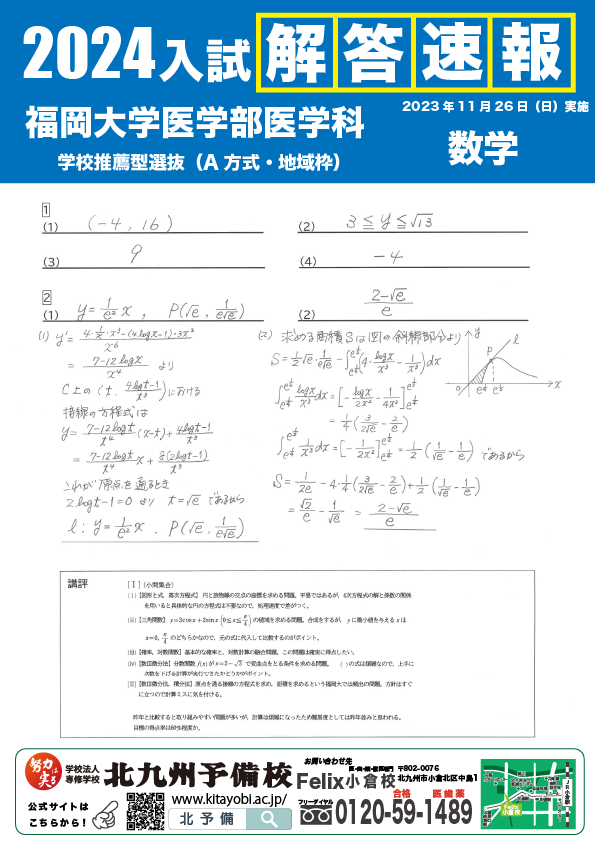 2024入試 解答速報
2023年11月26日（日）実施
福岡大学医学部医学科
学校推薦型選抜（A方式・地域枠）
数学
1
(1) (-4, 16)
(2) 3 ≦ y ≦ √13
(3) 9
(4) -4
2
(1) y = 1/e² x , P(√e, 1/(e√e))
(2) (2-√e)/e
(1) y' = (4・1/x・x³-(4logx-1)・3x²)/x⁶
= (7-12logx)/x⁴ より
C上の(t, (4logt-1)/t³)における
接線の方程式は
y = (7-12logt)/t⁴ (x-t) + (4logt-1)/t³
= (7-12logt)/t⁴ x + 8(2logt-1)/t³
これが原点を通るとき
2logt-1=0 より t=√e であるから
l: y = 1/e² x . P(√e, 1/(e√e))
(2) 求める面積Sは図の斜線部分より
S = 1/2 √e・1/(e√e) - ∫[e^(1/4)→e^(1/2)] (4・logx/x³ - 1/x³)dx
∫[e^(1/4)→e^(1/2)] logx/x³ dx = [-logx/2x² - 1/4x²][e^(1/4)→e^(1/2)]
= 1/4 (3/(2√e) - 2/e)
∫[e^(1/4)→e^(1/2)] 1/x³ dx = [-1/2x²][e^(1/4)→e^(1/2)] = 1/2 (1/√e - 1/e) であるから
S = 1/2e - 4・1/4 (3/(2√e) - 2/e) + 1/2 (1/√e - 1/e)
= 2/e - 1/√e = (2-√e)/e
y
l
P
O e^(1/4) e^(1/2) x
講評
[Ⅰ]（小問集合）
(ⅰ)【図形と式、高次方程式】 円と放物線の交点の座標を求める問題。平易ではあるが、4次方程式の解と係数の関係
を用いると具体的な円の方程式は不要なので、処理速度で差がつく。
(ⅱ)【三角関数】 y=3cosx+2sinx (0≦x≦π/4) の値域を求める問題。合成をするが、yに最小値を与えるxは
x=0, π/4 のどちらかなので、元の式に代入して比較するのがポイント。
(ⅲ)【確率、対数関数】基本的な確率と、対数計算の融合問題。この問題は確実に得点したい。
(ⅳ)【数Ⅲ微分法】分数関数 f(x) が x=2-√3 で変曲点をとる条件を求める問題。 ( )の式は煩雑なので、上手に
次数を下げる計算が実行できたかどうかがポイント。
[Ⅱ]【数Ⅲ微分法、積分法】原点を通る接線の方程式を求め、面積を求めるという福岡大では頻出の問題。方針はすぐ
に立つので計算ミスに気を付ける。
昨年と比較すると取り組みやすい問題が多いが、計算は煩雑になったため難易度としては昨年並みと思われる。
目標の得点率は60%程度か。
努力は実る
学校法人
専修学校
北九州予備校
公式サイトは
こちらから！
www.kitayobi.ac.jp/
北予備
お問い合わせ先
Felix小倉校
〒802-0076
北九州市小倉北区中島1
合格 医歯薬
フリーダイヤル
0120-59-1489
Felix
小倉校
JR小倉駅